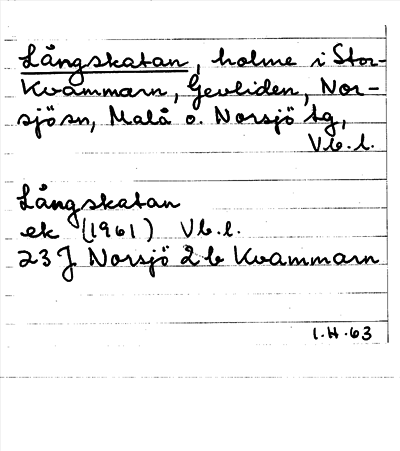 Långskatan, holme i Stor-
Kvammarn, Gevliden, Nor-
sjö sn, Malå o. Norsjö tg,
Vb. l.
Långskatan
ek (1961) Vb. l.
23 J Norsjö 2 b Kvammarn
I. H. 63